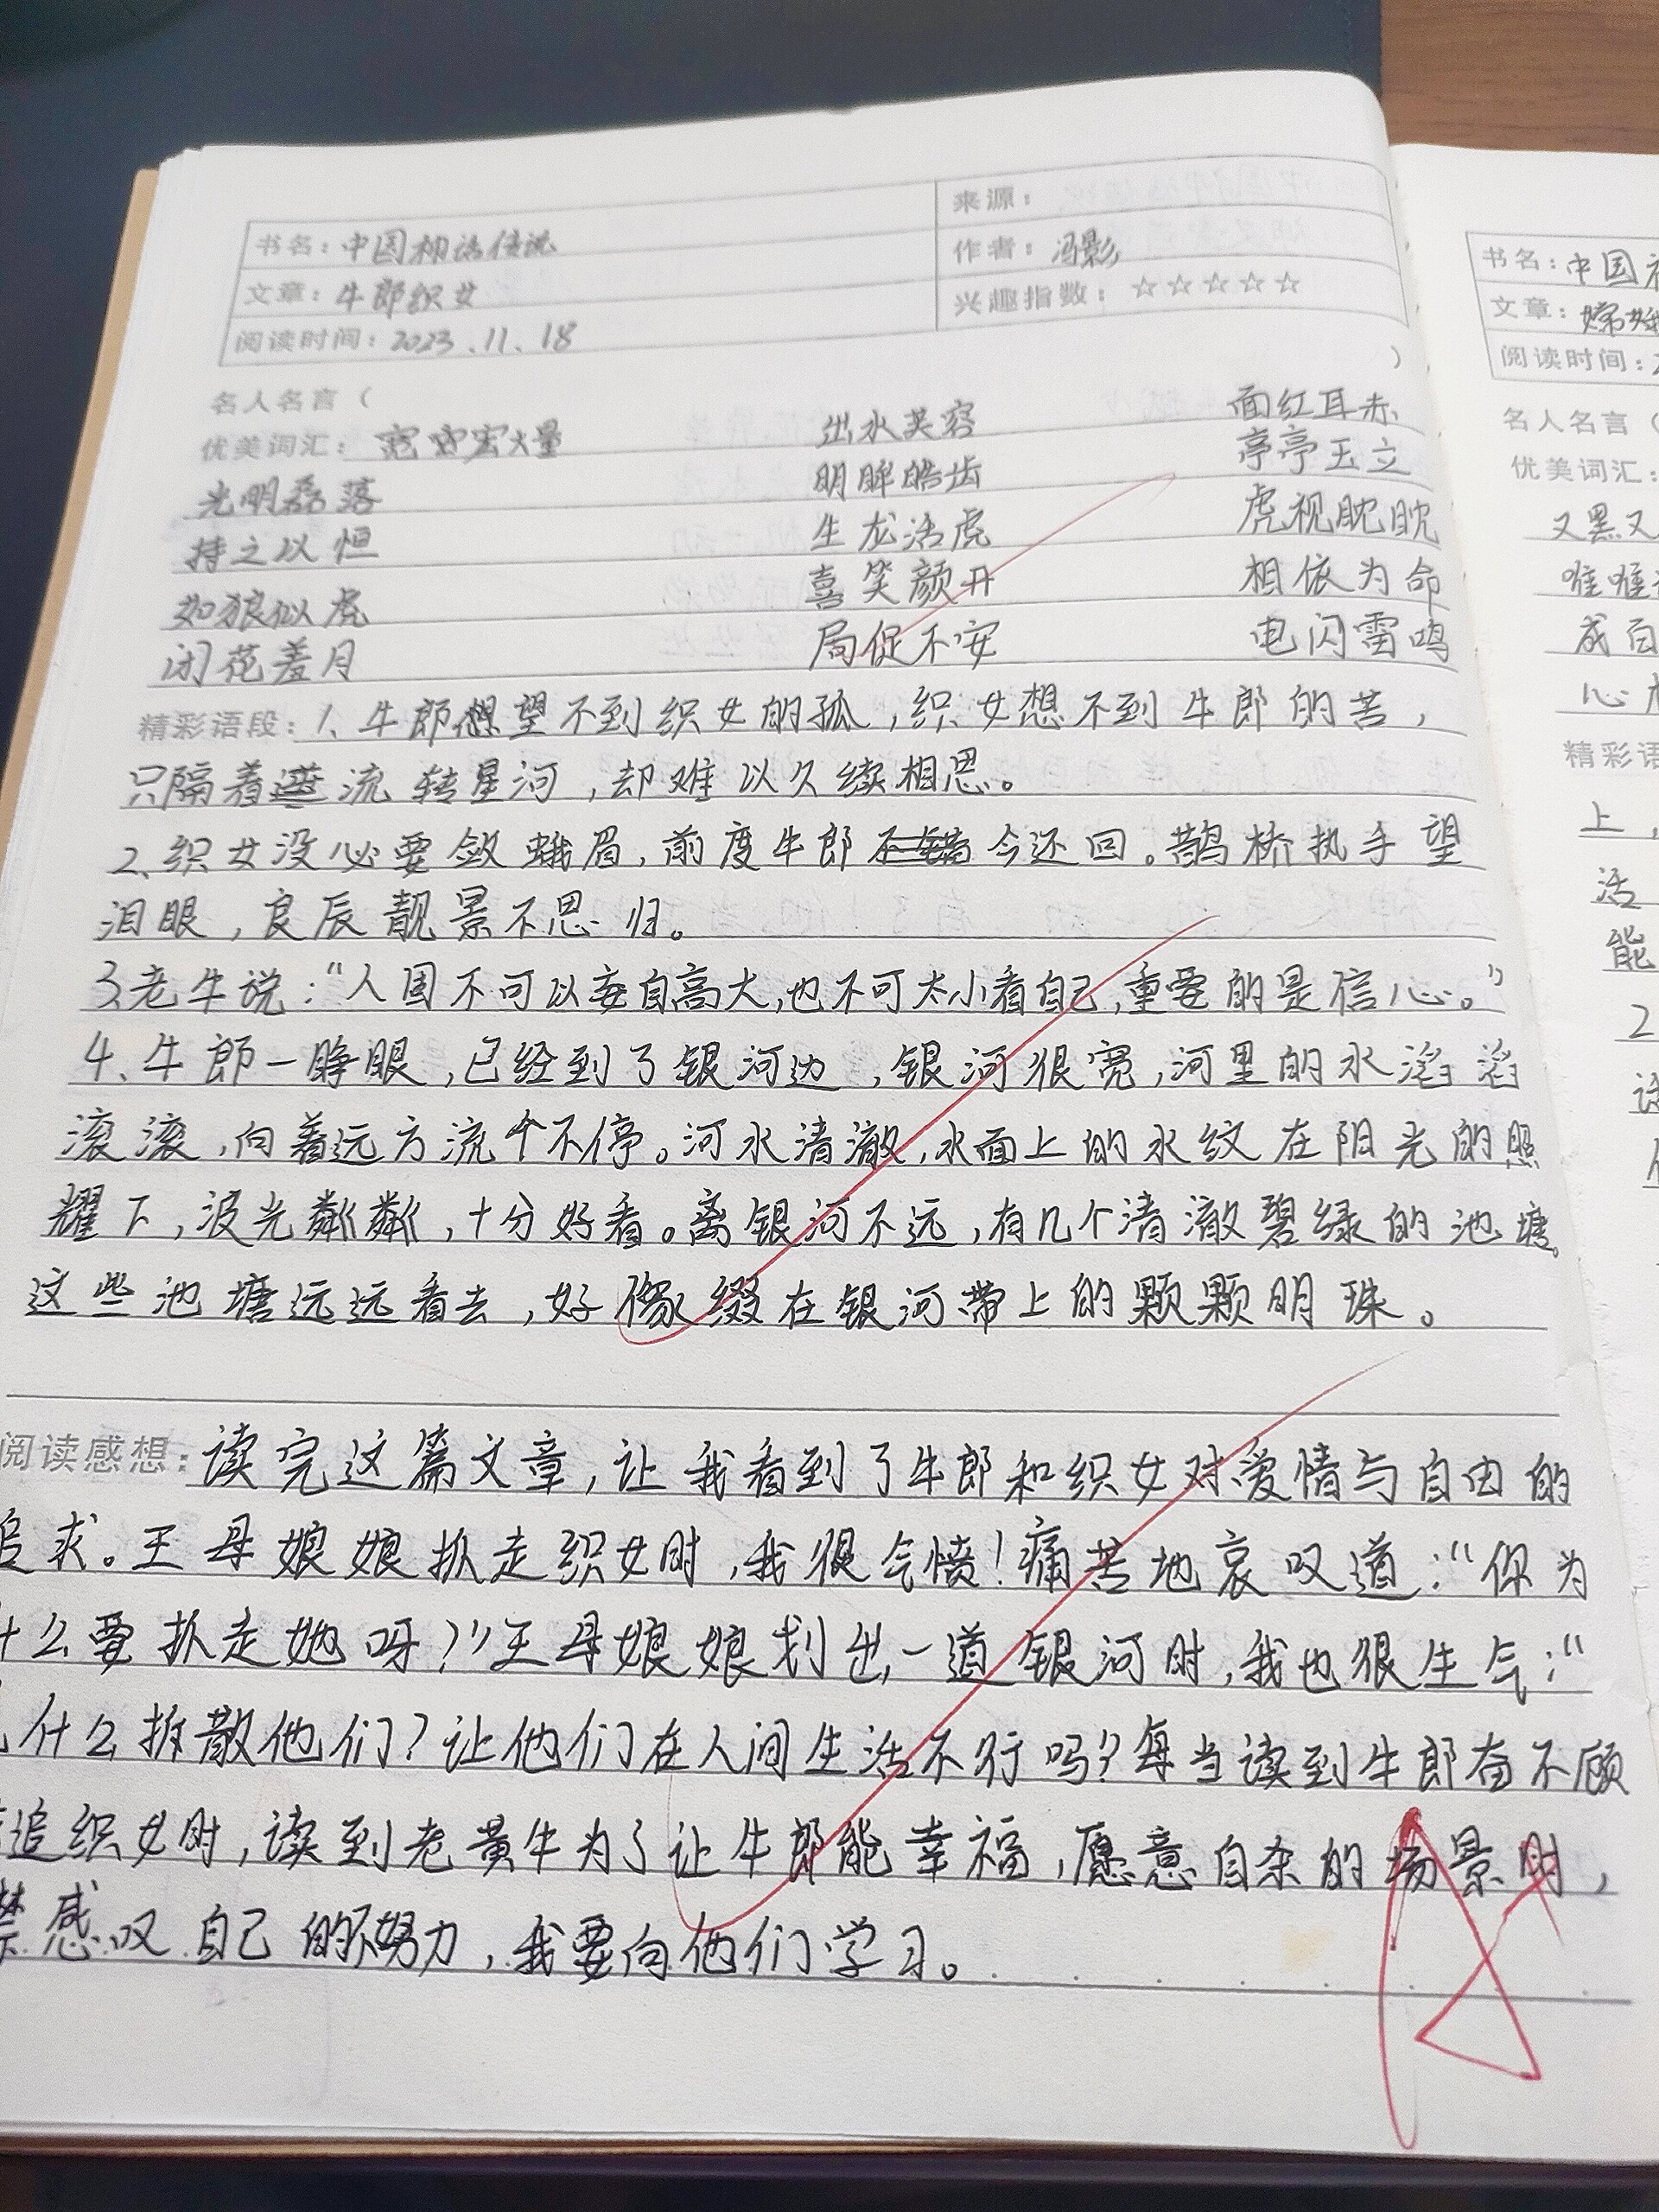 来源：
书名：中国神话传说
作者：冯影
文章：牛郎织女
兴趣指数：☆☆☆☆☆
阅读时间：2023.11.18
名人名言（ ）
优美词汇： 宏大量 出水芙容 面红耳赤
光明磊落 明眸皓齿 亭亭玉立
持之以恒 生龙活虎 虎视眈眈
如狼似虎 喜笑颜开 相依为命
闭花羞月 局促不安 电闪雷鸣
精彩语段：1、牛郎想望不到织女的孤，织女想不到牛郎的苦，
只隔着流转星河，却难以久续相思。
2、织女没必要敛蛾眉，前度牛郎今还回。鹊桥执手望
泪眼，良辰靓景不思归。
3、老牛说：“人固不可以妄自高大，也不可太小看自己，重要的是信心。”
4、牛郎一睁眼，已经到了银河边，银河很宽，河里的水滔滔
滚滚，向着远方流个不停。河水清澈，水面上的水纹在阳光的照
耀下，波光粼粼，十分好看。离银河不远，有几个清澈碧绿的池塘。
这些池塘远远看去，好像缀在银河带上的颗颗明珠。
阅读感想：读完这篇文章，让我看到了牛郎和织女对爱情与自由的
追求。王母娘娘抓走织女时，我很气愤！痛苦地哀叹道：“你为
什么要抓走她呀？”王母娘娘划出一道银河时，我也很生气：“
什么拆散他们？让他们在人间生活不行吗？每当读到牛郎奋不顾
追织女时，读到老黄牛为了让牛郎能幸福，愿意自杀的场景时，
禁感叹自己的不努力，我要向他们学习。
A
书名：中国
文章：嫦娥
阅读时间：2
名人名言（
优美词汇：
又黑又
唯唯
成百
心
精彩语
上，
活
能
2